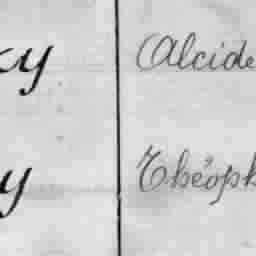 y Alcide
y Théoph